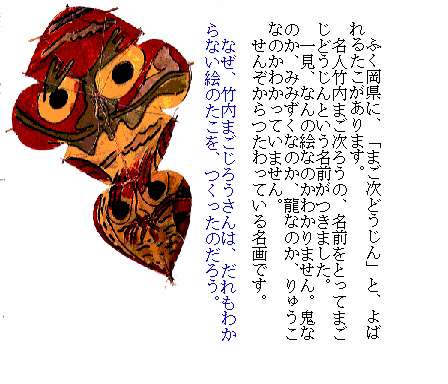 ふく岡県に、「まご次どうじん」と、よば
れるたこがあります。
名人竹内まご次ろうの、名前をとってまご
じどうじんという名前がつきました。
一見、なんの絵なのかわかりません。鬼な
のか、みみずくなのか、龍なのか、りゅうこ
なのかわかっていません。
せんぞからつたわっている名画です。
なぜ、竹内まごじろうさんは、だれもわか
らない絵のたこを、つくったのだろう。